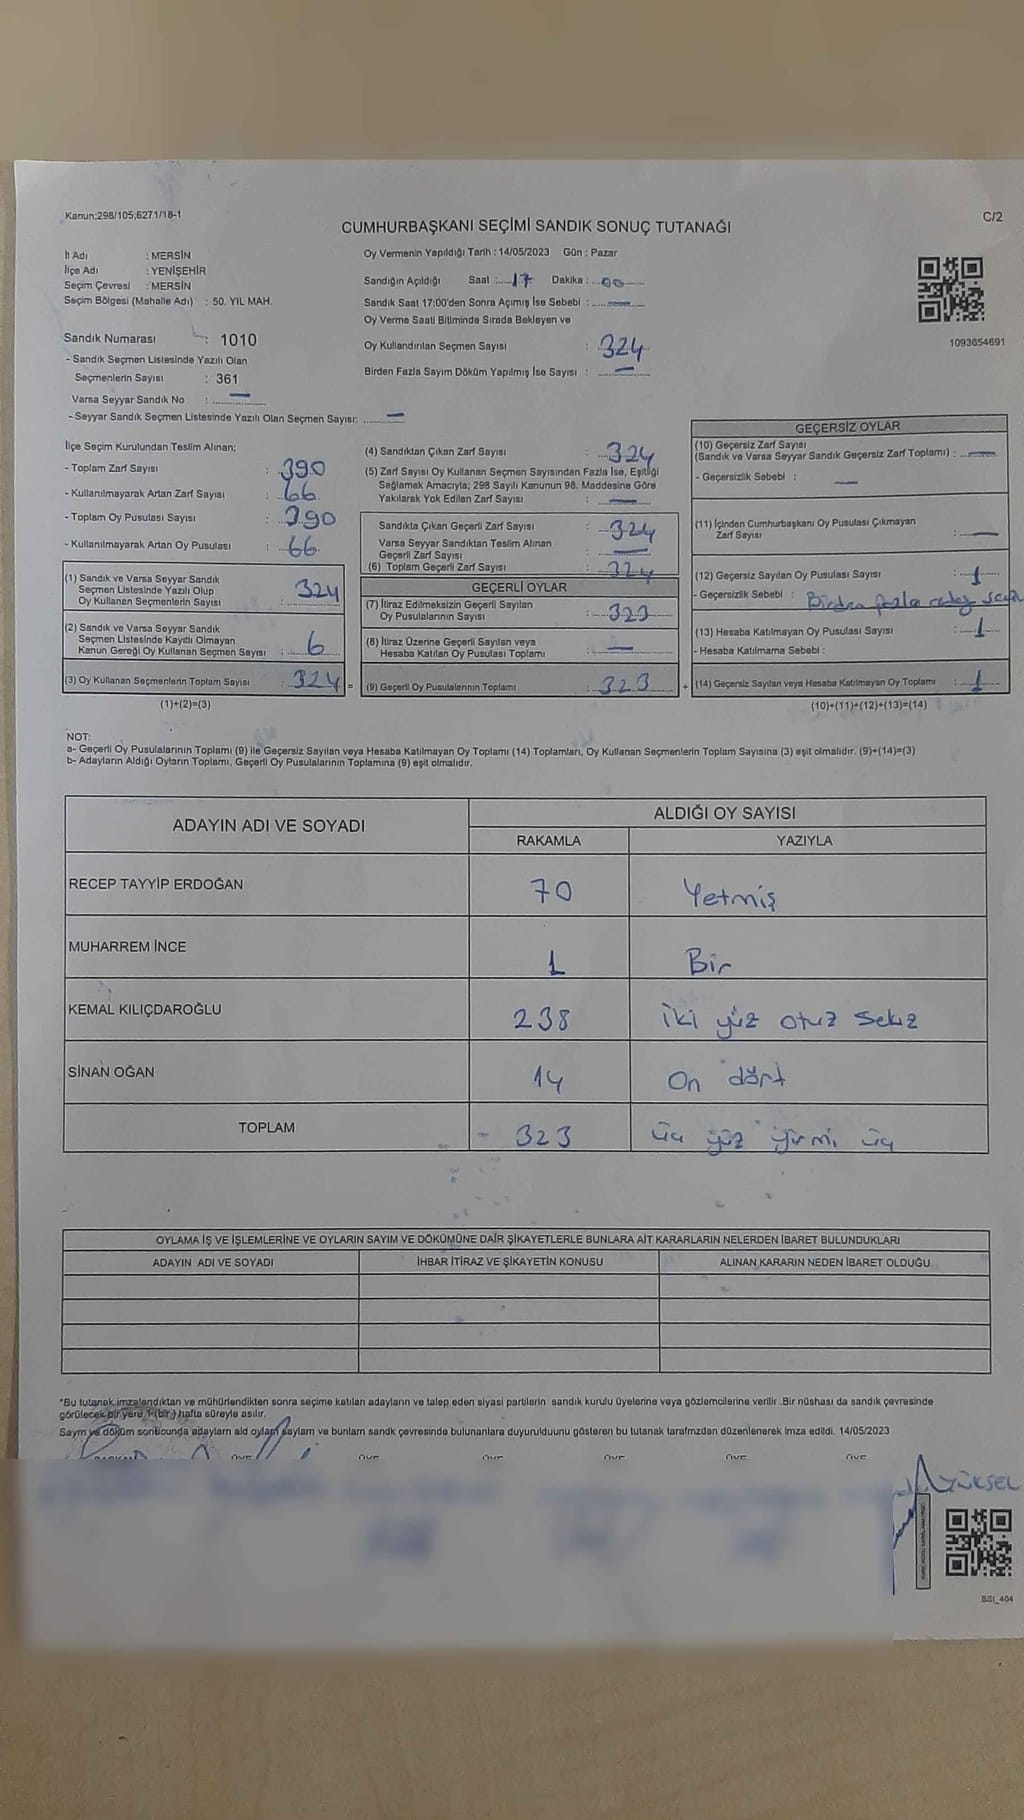 Kanun;298/105,6271/18-1
C/2
CUMHURBAŞKANI SEÇİMİ SANDIK SONUÇ TUTANAĞI
İl Adı : MERSİN
İlçe Adı : YENİŞEHİR
Seçim Çevresi : MERSİN
Seçim Bölgesi (Mahalle Adı) : 50. YIL MAH.
Oy Vermenin Yapıldığı Tarih : 14/05/2023 Gün : Pazar
Sandığın Açıldığı Saat : 17 Dakika : 00
Sandık Saat 17:00'den Sonra Açımış İse Sebebi : —
Oy Verme Saati Bitiminde Sırada Bekleyen ve
Oy Kullandırılan Seçmen Sayısı : 324
Birden Fazla Sayım Döküm Yapılmış İse Sayısı : —
1093654691
Sandık Numarası : 1010
- Sandık Seçmen Listesinde Yazılı Olan
Seçmenlerin Sayısı : 361
Varsa Seyyar Sandık No : —
- Seyyar Sandık Seçmen Listesinde Yazılı Olan Seçmen Sayısı: —
İlçe Seçim Kurulundan Teslim Alınan;
- Toplam Zarf Sayısı : 390
- Kullanılmayarak Artan Zarf Sayısı : 66
- Toplam Oy Pusulası Sayısı : 390
- Kullanılmayarak Artan Oy Pusulası : 66
(1) Sandık ve Varsa Seyyar Sandık
Seçmen Listesinde Yazılı Olup
Oy Kullanan Seçmenlerin Sayısı : 324
(2) Sandık ve Varsa Seyyar Sandık
Seçmen Listesinde Kayıtlı Olmayan
Kanun Gereği Oy Kullanan Seçmen Sayısı : 6
(3) Oy Kullanan Seçmenlerin Toplam Sayısı : 324 =
(1)+(2)=(3)
(4) Sandıktan Çıkan Zarf Sayısı : 324
(5) Zarf Sayısı Oy Kullanan Seçmen Sayısından Fazla İse, Eşitliği
Sağlamak Amacıyla; 298 Sayılı Kanunun 98. Maddesine Göre
Yakılarak Yok Edilen Zarf Sayısı : —
Sandıkta Çıkan Geçerli Zarf Sayısı : 324
Varsa Seyyar Sandıktan Teslim Alınan
Geçerli Zarf Sayısı : —
(6) Toplam Geçerli Zarf Sayısı : 324
GEÇERLİ OYLAR
(7) İtiraz Edilmeksizin Geçerli Sayılan
Oy Pusulalarının Sayısı : 323
(8) İtiraz Üzerine Geçerli Sayılan veya
Hesaba Katılan Oy Pusulası Toplamı : —
(9) Geçerli Oy Pusulalarının Toplamı : 323 +
GEÇERSİZ OYLAR
(10) Geçersiz Zarf Sayısı
(Sandık ve Varsa Seyyar Sandık Geçersiz Zarf Toplamı) : —
- Geçersizlik Sebebi : —
(11) İçinden Cumhurbaşkanı Oy Pusulası Çıkmayan
Zarf Sayısı : —
(12) Geçersiz Sayılan Oy Pusulası Sayısı : 1
- Geçersizlik Sebebi : Birden fazla
(13) Hesaba Katılmayan Oy Pusulası Sayısı : 1
- Hesaba Katılmama Sebebi :
(14) Geçersiz Sayılan veya Hesaba Katılmayan Oy Toplamı : 1
(10)+(11)+(12)+(13)=(14)
NOT:
a- Geçerli Oy Pusulalarının Toplamı (9) ile Geçersiz Sayılan veya Hesaba Katılmayan Oy Toplamı (14) Toplamları, Oy Kullanan Seçmenlerin Toplam Sayısına (3) eşit olmalıdır. (9)+(14)=(3)
b- Adayların Aldığı Oyların Toplamı, Geçerli Oy Pusulalarının Toplamına (9) eşit olmalıdır.
ADAYIN ADI VE SOYADI ALDIĞI OY SAYISI
RAKAMLA YAZIYLA
RECEP TAYYİP ERDOĞAN 70 Yetmiş
MUHARREM İNCE 1 Bir
KEMAL KILIÇDAROĞLU 238 iki yüz otuz sekiz
SİNAN OĞAN 14 On dört
TOPLAM - 323 üç yüz yirmi üç
OYLAMA İŞ VE İŞLEMLERİNE VE OYLARIN SAYIM VE DÖKÜMÜNE DAİR ŞİKAYETLERLE BUNLARA AİT KARARLARIN NELERDEN İBARET BULUNDUKLARI
ADAYIN ADI VE SOYADI İHBAR İTİRAZ VE ŞİKAYETİN KONUSU ALINAN KARARIN NEDEN İBARET OLDUĞU
*Bu tutanak imzalandıktan ve mühürlendikten sonra seçime katılan adayların ve talep eden siyasi partilerin sandık kurulu üyelerine veya gözlemcilerine verilir .Bir nüshası da sandık çevresinde
görülecek bir yere 1 (bir) hafta süreyle asılır.
Sayım ve döküm sonucunda adaylarn ald oylarn saylarn ve bunlarn sandk çevresinde bulunanlara duyurulduunu gösteren bu tutanak tarafmzdan düzenlenerek imza edildi. 14/05/2023
BAŞKAN ÜYE ÜYE ÜYE ÜYE ÜYE ÜYE
YÜKSEL
BSI_404